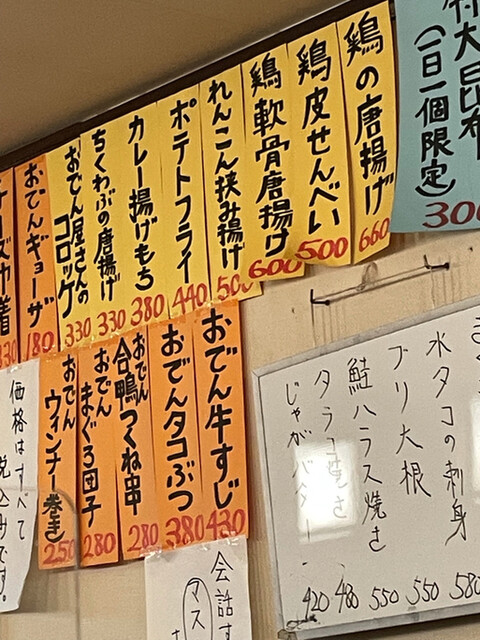 大昆布
（一日一個限定）
300
鶏の唐揚げ
660
鶏皮せんべい
500
鶏軟骨唐揚げ
600
れんこん挟み揚げ
500
ポテトフライ
440
カレー揚げもち
380
ちくわぶの唐揚げ
330
おでん屋さんの
コロッケ
330
おでんギョーザ
180
ズ巾着
おでん牛すじ
430
おでんタコぶつ
380
おでん
合鴨つくね串
280
おでん
まぐろ団子
280
おでん
ウィンナー巻き
250
価格はすべて
税込みです。
会話す
マス
水タコの刺身
580
ブリ大根
550
鮭ハラス焼き
550
タラコ焼き
480
じゃがバター
420